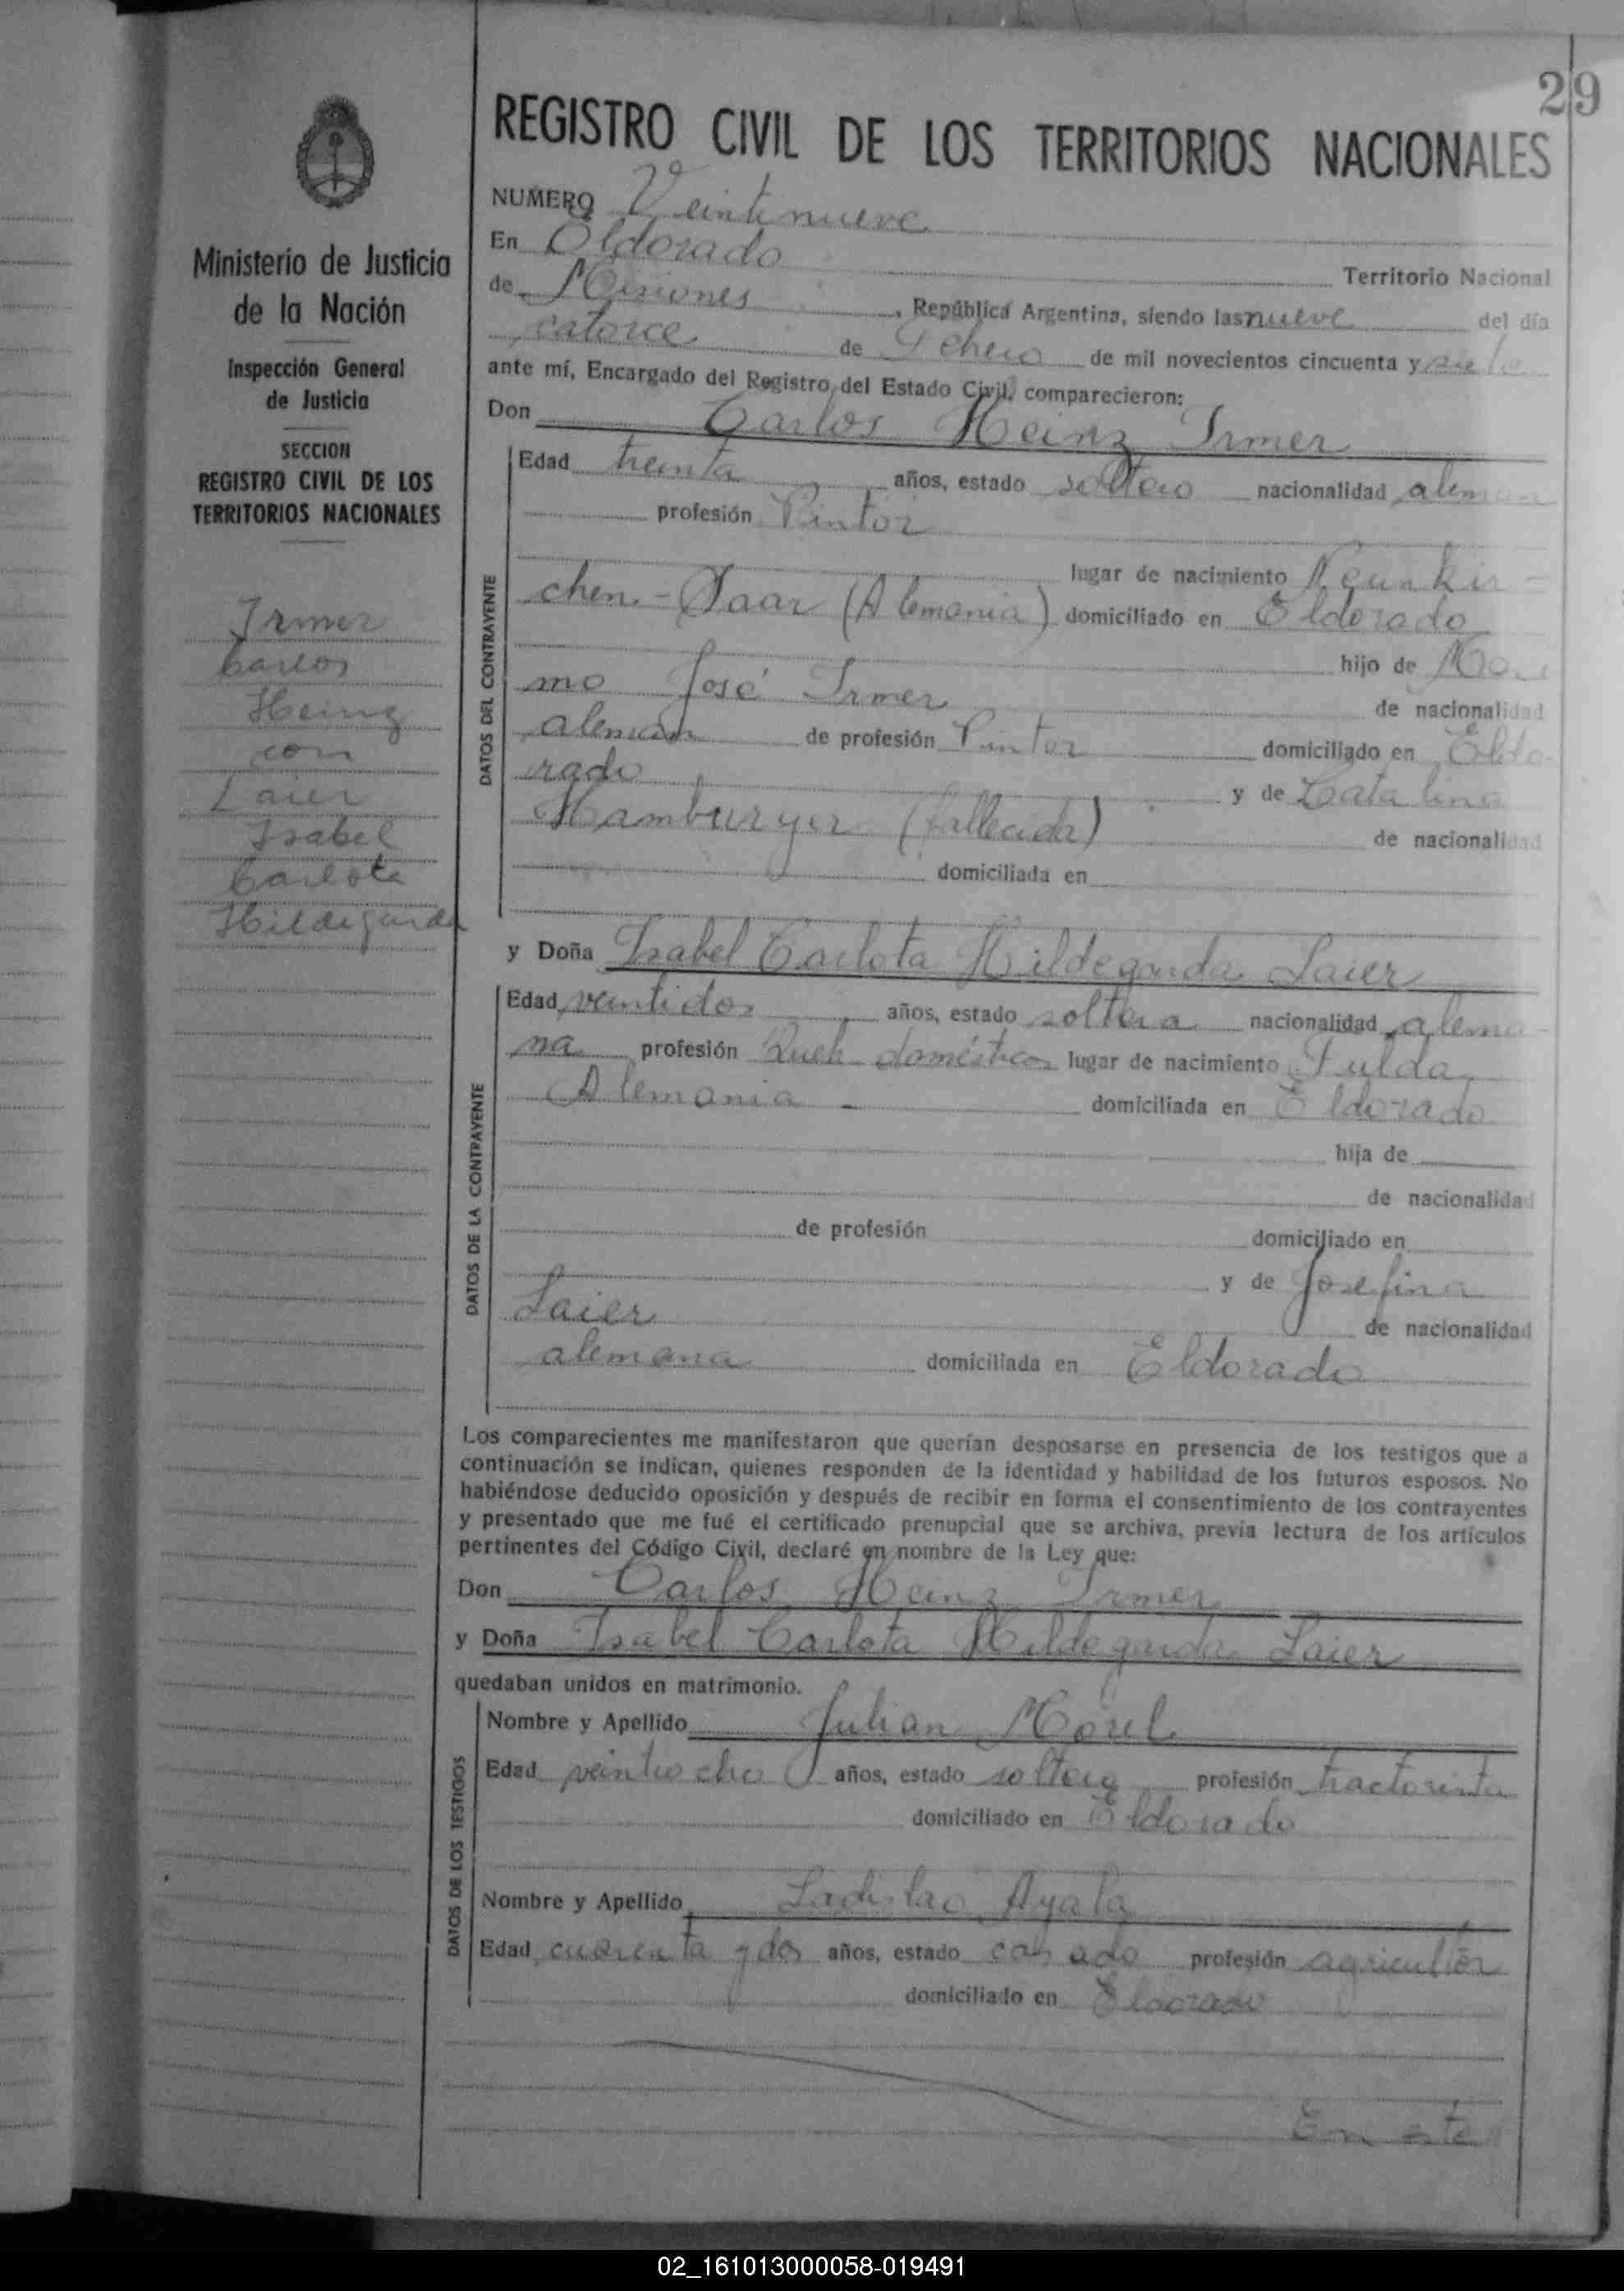 29
REGISTRO CIVIL DE LOS TERRITORIOS NACIONALES
Ministerio de Justicia
de la Nación
Inspección General
de Justicia
SECCION
REGISTRO CIVIL DE LOS
TERRITORIOS NACIONALES
Irmer
Carlos
Heinz
con
Laier
Isabel
Carlota
Hildegarda
NUMERO Veintinueve
En Eldorado Territorio Nacional
de Misiones, República Argentina, siendo las nueve del día
catorce de Febrero de mil novecientos cincuenta y siete
ante mí, Encargado del Registro del Estado Civil, comparecieron:
Don Carlos Heinz Irmer
DATOS DEL CONTRAYENTE
Edad treinta años, estado soltero nacionalidad aleman
profesión Pintor
lugar de nacimiento Neunkir-
chen-Saar (Alemania) domiciliado en Eldorado
hijo de
mo José Irmer de nacionalidad
aleman de profesión Pintor domiciliado en Eldo-
rado y de Catalina
Hamburger (fallecida) de nacionalidad
domiciliada en
y Doña Isabel Carlota Hildegarda Laier
DATOS DE LA CONTRAYENTE
Edad veintidos años, estado soltera nacionalidad alema-
na profesión Queh. domésticos lugar de nacimiento Fulda,
Alemania - domiciliada en Eldorado
hija de
de nacionalidad
de profesión domiciliado en
y de Josefina
Laier de nacionalidad
alemana domiciliada en Eldorado
Los comparecientes me manifestaron que querían desposarse en presencia de los testigos que a
continuación se indican, quienes responden de la identidad y habilidad de los futuros esposos. No
habiéndose deducido oposición y después de recibir en forma el consentimiento de los contrayentes
y presentado que me fué el certificado prenupcial que se archiva, previa lectura de los artículos
pertinentes del Código Civil, declaré en nombre de la Ley que:
Don Carlos Heinz Irmer
y Doña Isabel Carlota Hildegarda Laier
quedaban unidos en matrimonio.
DATOS DE LOS TESTIGOS
Nombre y Apellido Julian Morel
Edad veintiocho años, estado soltero profesión tractorista
domiciliado en Eldorado
Nombre y Apellido Ladislao Ayala
Edad cuarenta y dos años, estado casado profesión agricultor
domiciliado en Eldorado
En este
02_161013000058-019491